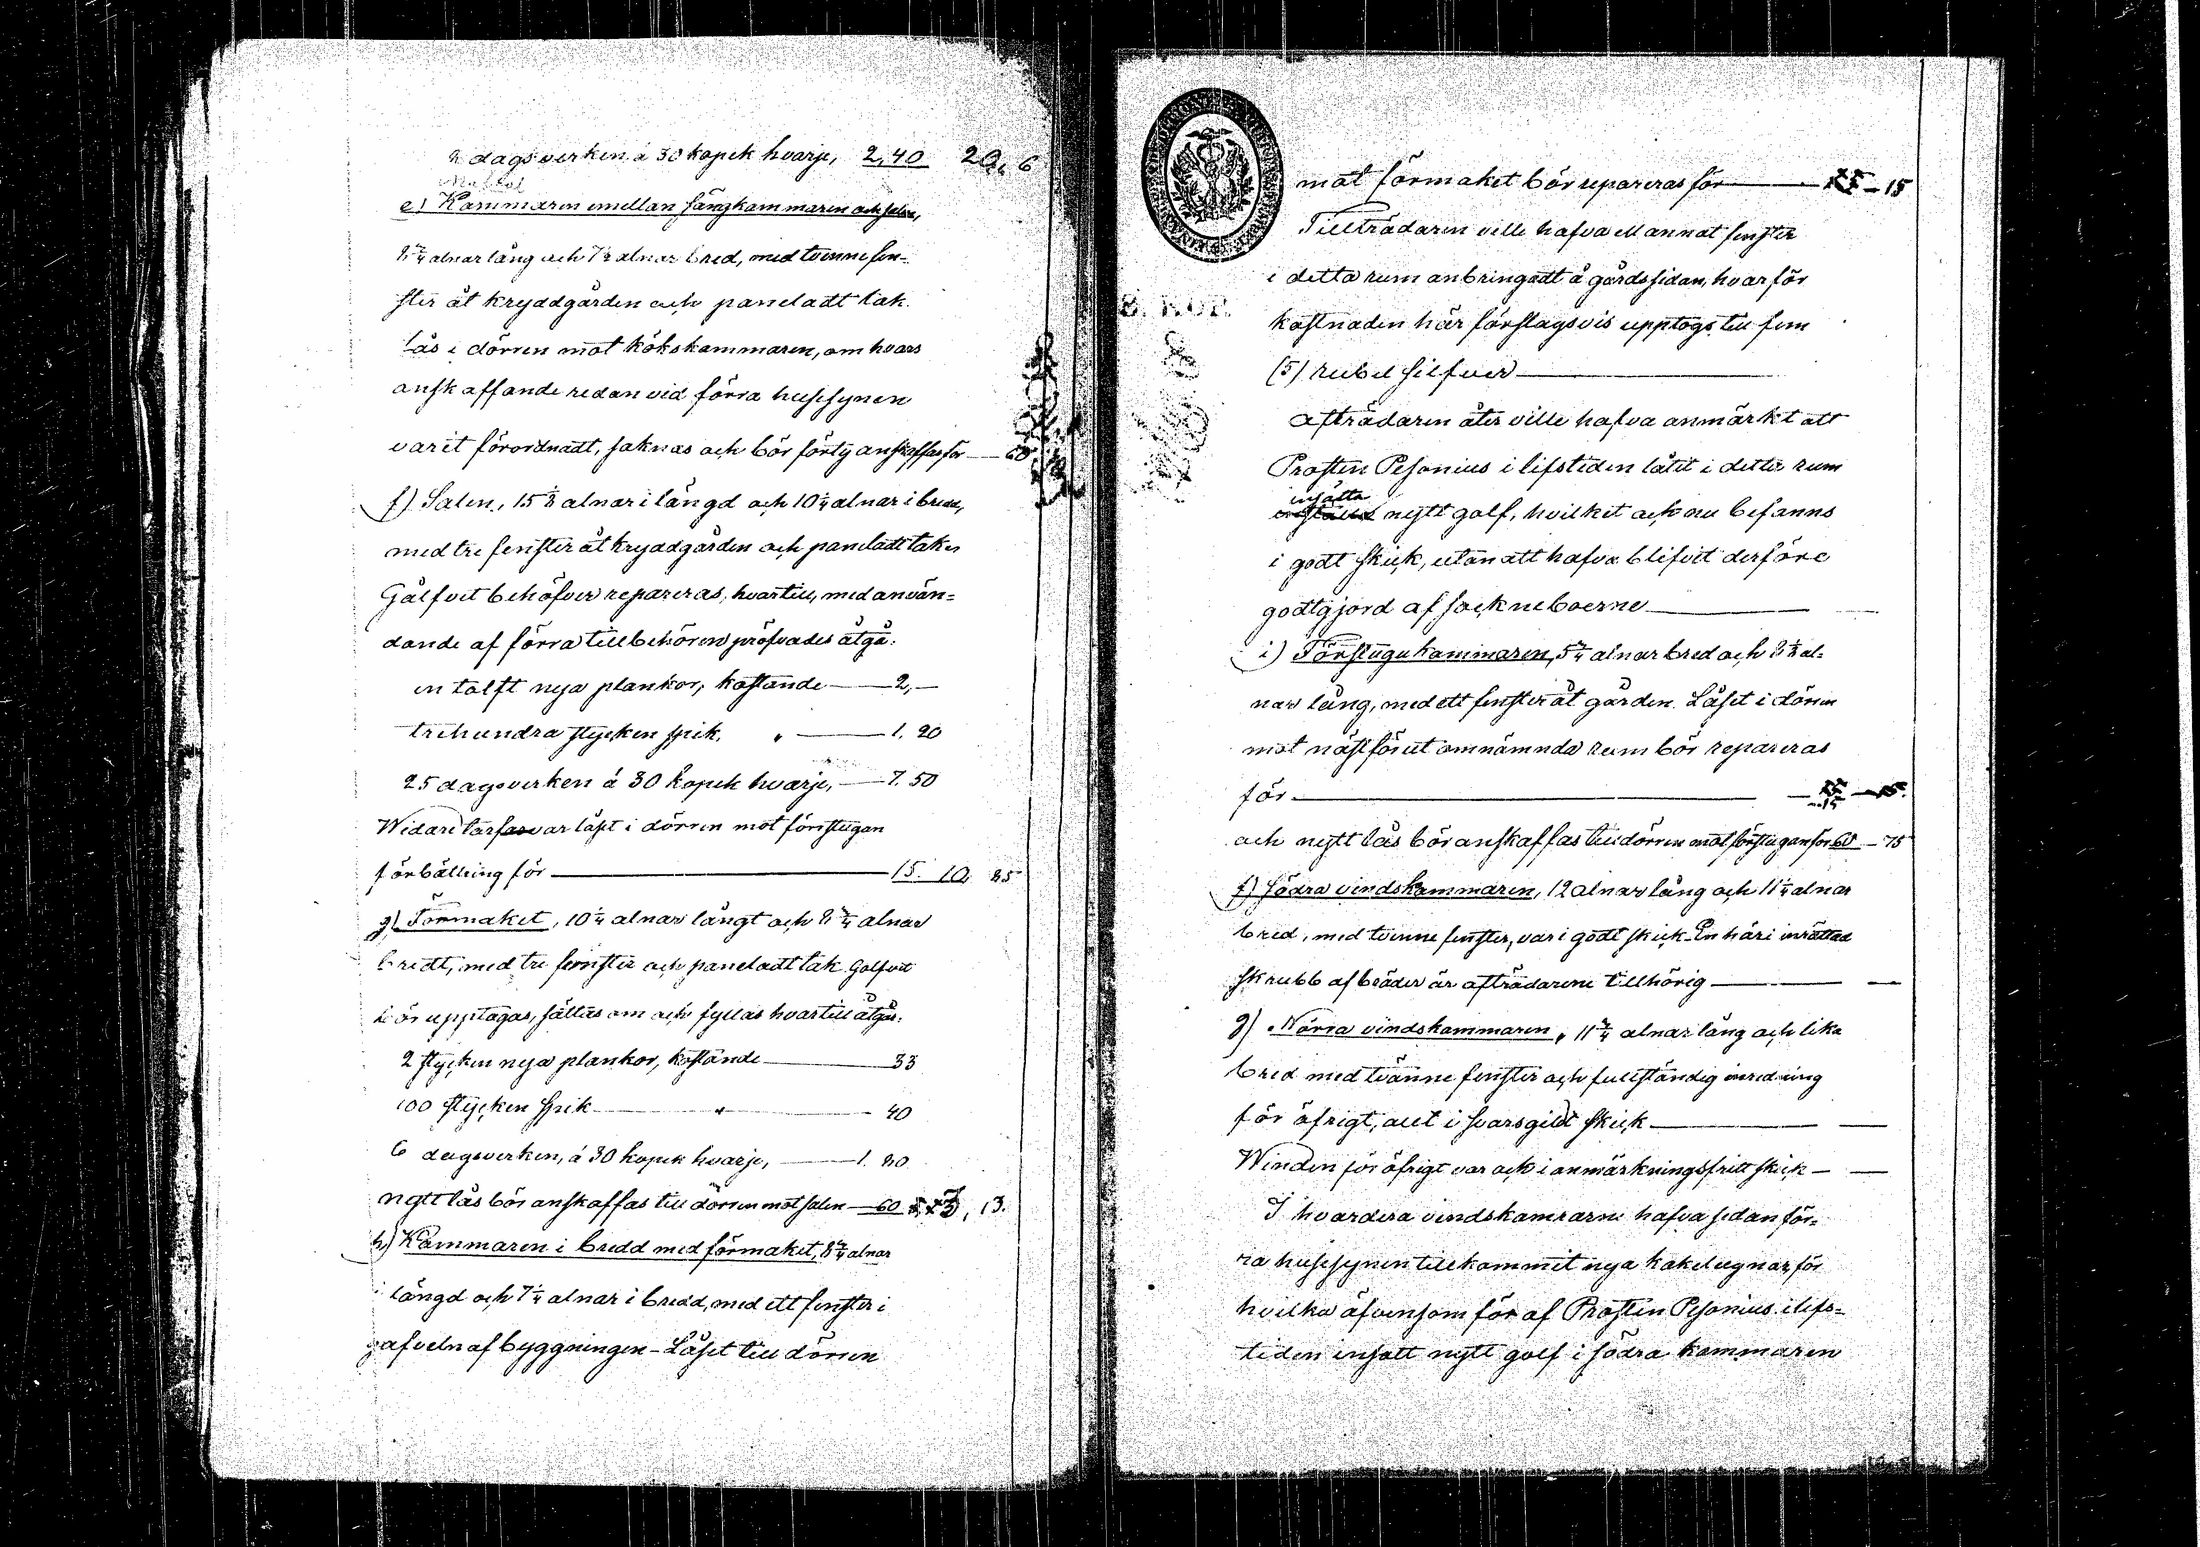 8 dagsverken á 30 kopek hvarje, 2,40 20, 6
e) Kammaren emellan sängkammaren och salen,
8 3/4 alnar lång och 7 1/2 alnar bred, med tvenne fen-
ster åt kryddgården och paneladt tak.
Lås i dörren mot kökskammaren, om hvars
anskaffande redan vid förra husesynen
varit förordnadt, saknas och bör förty anskaffas för — 60
f) Salen, 15 1/2 alnar i längd och 10 1/4 alnar i bredd,
med tre fenster åt kryddgården och paneladt tak
Golfvet behöfver repareras, hvartill, med använ-
dande af förra tillbehören pröfvades åtgå:
en tolft nya plankor, kostande — 2,—
trehundra stycken spik, " — 1. 20
25 dagsverken á 30 kopek hvarje, — 7. 50
Widare tarfvar låset i dörren mot förstugan
förbättring för — 15. 10, 85
g) Förmaket, 10 1/4 alnar långt och 8 3/4 alnar
bredt, med tre fenster och paneladt tak. Golfvet
bör upptagas, sättas om och fyllas hvartill åtgår:
2 stycken nya plankor, kostande — 33
100 stycken spik — " — 40
6 dagsverken, á 30 kopek hvarje, — 1. 80
nytt lås bör anskaffas till dörren mot salen — 60 3, 13.
h) Kammaren i bredd med förmaket, 8 3/4 alnar
i längd och 7 1/4 alnar i bredd, med ett fenster i
gafveln af byggningen – Låset till dörren
mot förmaket bör repareras för — 15
Tillträdaren ville hafva ett annat fenster
i detta rum anbringadt å gårdssidan, hvarför
kostnaden här förslagsvis upptogs till fem
(5) rubel silfver —
Afträdaren åter ville hafva anmärkt att
Prosten Pesonius i lifstiden låtit i detta rum
insätta
nytt golf, hvilket och nu befanns
i godt skick, utan att hafva blifvit derföre
godtgjord af sockneboerne —
i) Förstugukammaren, 5 3/4 alnar bred och 8 1/2 al-
nar lång, med ett fenster åt gården. Låset i dörren
mot näst förut omnämnda rum bör repareras
för — 15
och nytt lås bör anskaffas till dörren mot förstugan för 60 — 75
f) Södra vindskammaren, 12 alnar lång och 11 1/4 alnar
bred, med tvenne fenster, var i godt skick – En häri inrättad
skrubb af bräder är afträdarene tillhörig — —
g) Norra vindskammaren, 11 3/4 alnar lång och lika
bred med tvänne fenster och fullständig inredning
för öfrigt, allt i svarsgildt skick — —
Winden för öfrigt var och i anmärkningsfritt skick — —
I hvardera vindskamrarne hafva sedan för-
ra husesynen tillkommit nya kakelugnar, för
hvilka äfvensom för af Prosten Pesonius i lifs-
tiden insatt nytt golf i södra kammaren